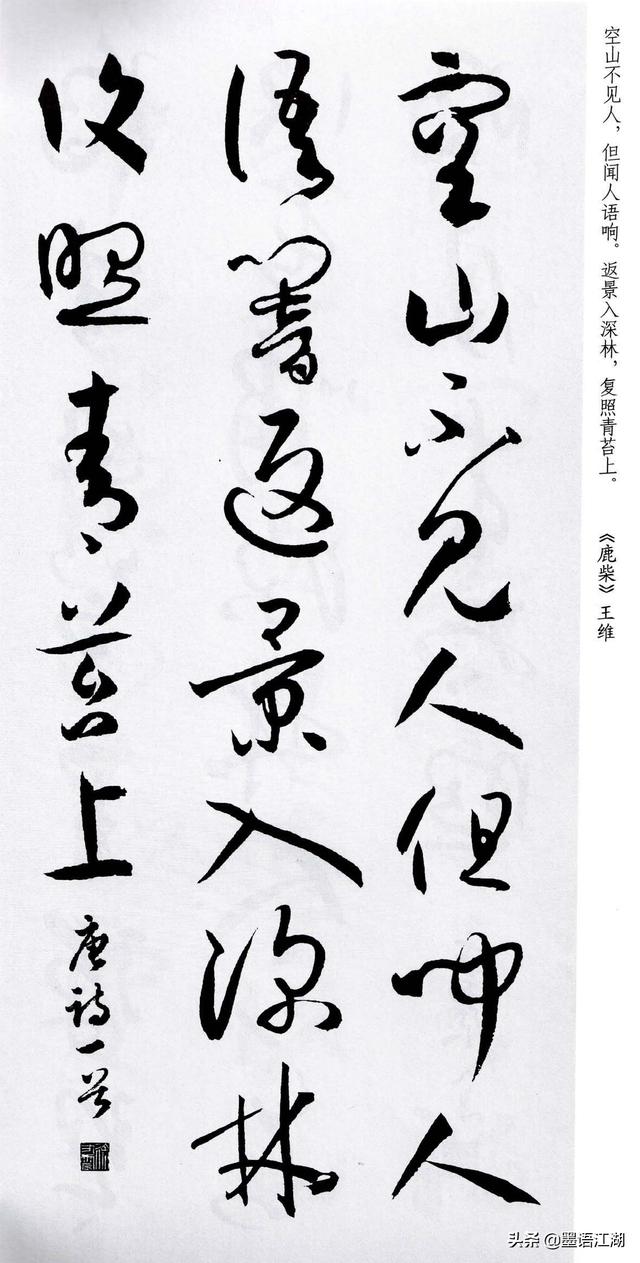 空山不见人，但闻人语响。返景入深林，复照青苔上。 《鹿柴》王维
空山不見人但闻人
語響返景入深林
復照青苔上 唐詩一首
头条 @墨语江湖